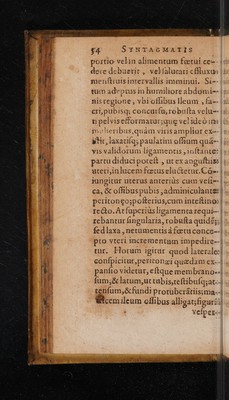 54 SYNTAGMATIS
portio vel in alimentum fœtui ce-
dere debuerit, vel salutari effluxu
menstruis intervallis imminui. Si-
tum adeptus in humiliore abdomi-
nis regione, vbi ossibus Ileum, sa-
cri, pubisq; concursu, robusta velu-
ti pelvis efformatur; quę vel ideò in
mulieribus, quàm viris amplior ex-
istit, laxatisq; paulatim ossium quã-
vis validorum ligamentis, instante
partu diduci potest, ut ex angustiis
uteri, in lucem fœtus eluctetur. Cõ-
iungitur uterus anterius cum vesi-
ca, & ossibus pubis, adminiculante
peritonęo; posterius, cum intestino
recto. At superius ligamenta requi-
rebantur singularia, robusta quidẽ,
sed laxa, ne tumentis à fœtu conce-
pto vteri incrementum impedire-
tur. Horum igitur quod laterale
conspicitur, peritonæi quædam ex-
pansio videtur, estque membrano-
sum, & latum, ut tubis, testibusq; at-
tensum, & fundi protuberãtiis, ma-
ilicem ileum ossibus alligat; figurã
vesper-